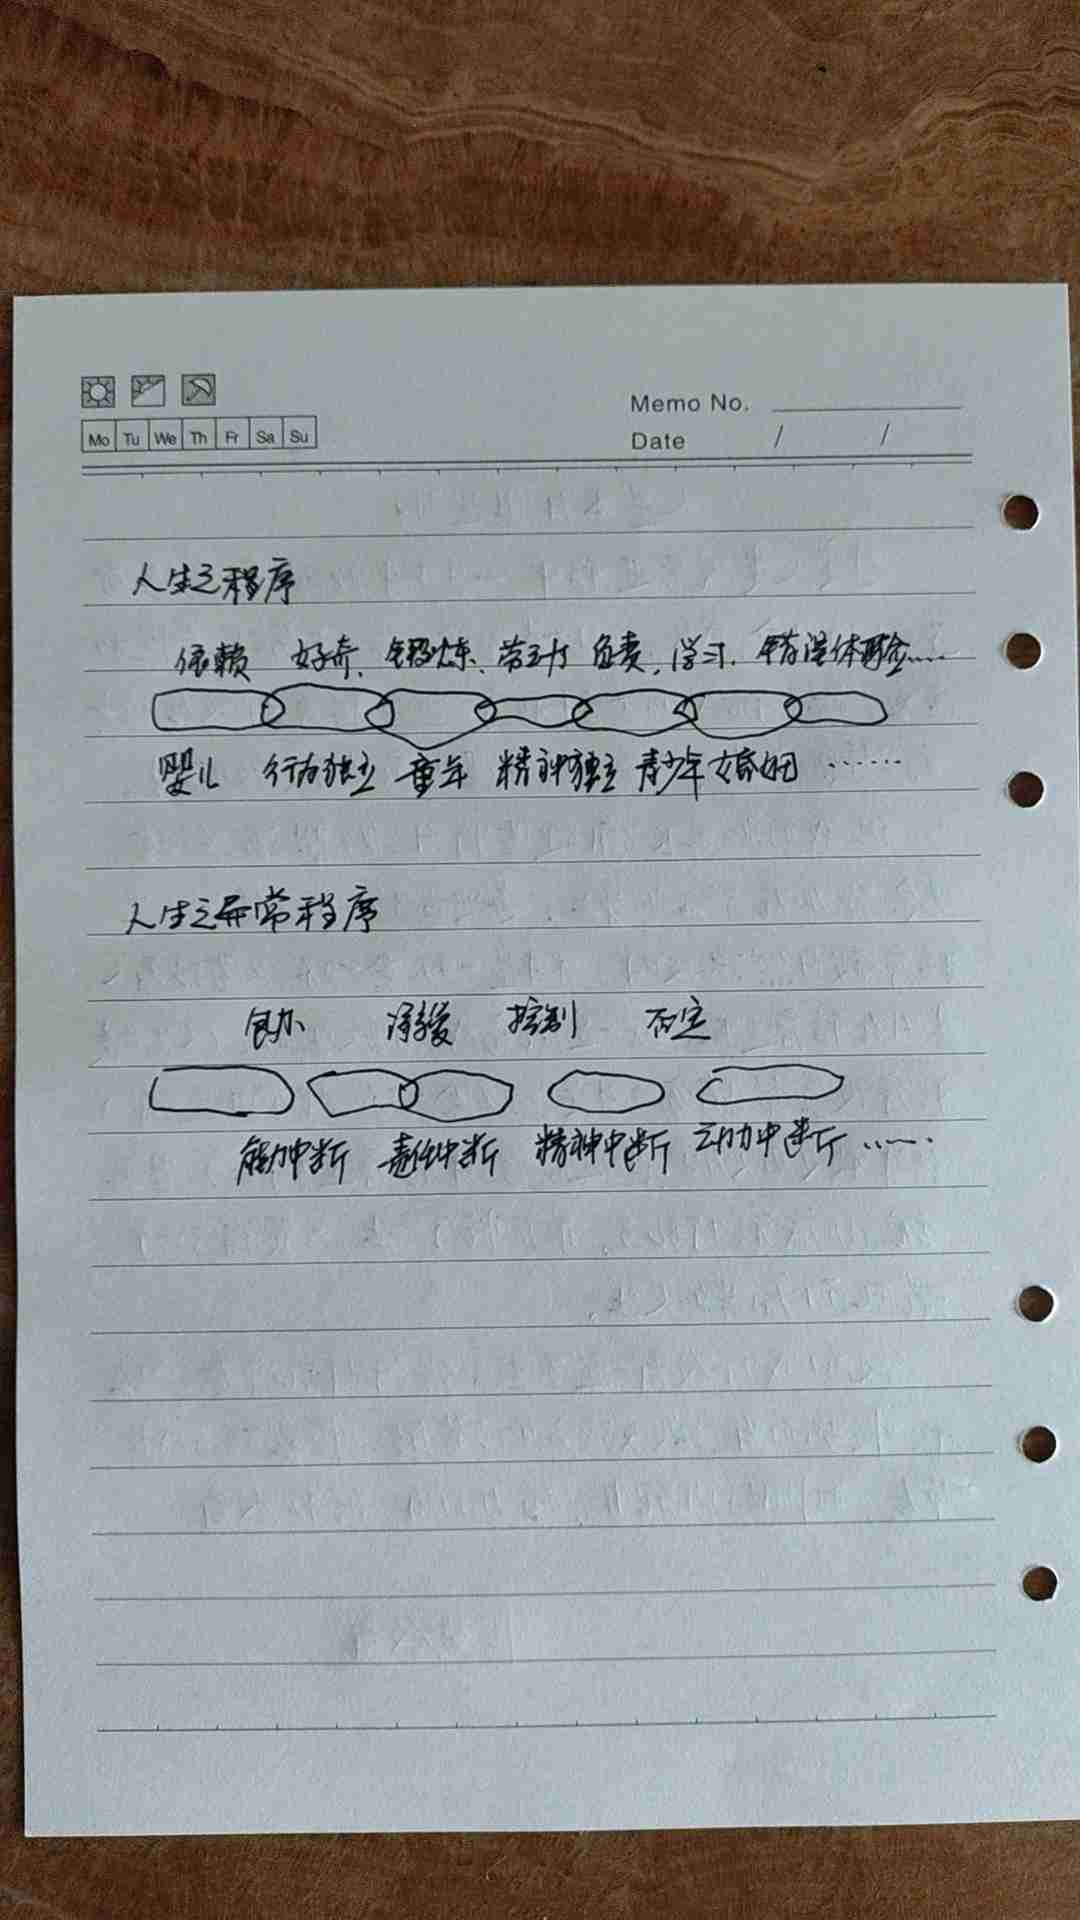 Memo No.
Mo Tu We Th Fr Sa Su
Date / /
人生之程序
依赖 好奇、锻炼、劳动 负责,学习.
婴儿 行为独立 童年 精神独立 青少年 婚姻 ……
人生之异常程序
包办 溺爱 控制 否定
能力中断 责任中断 精神中断 动力中断 ……